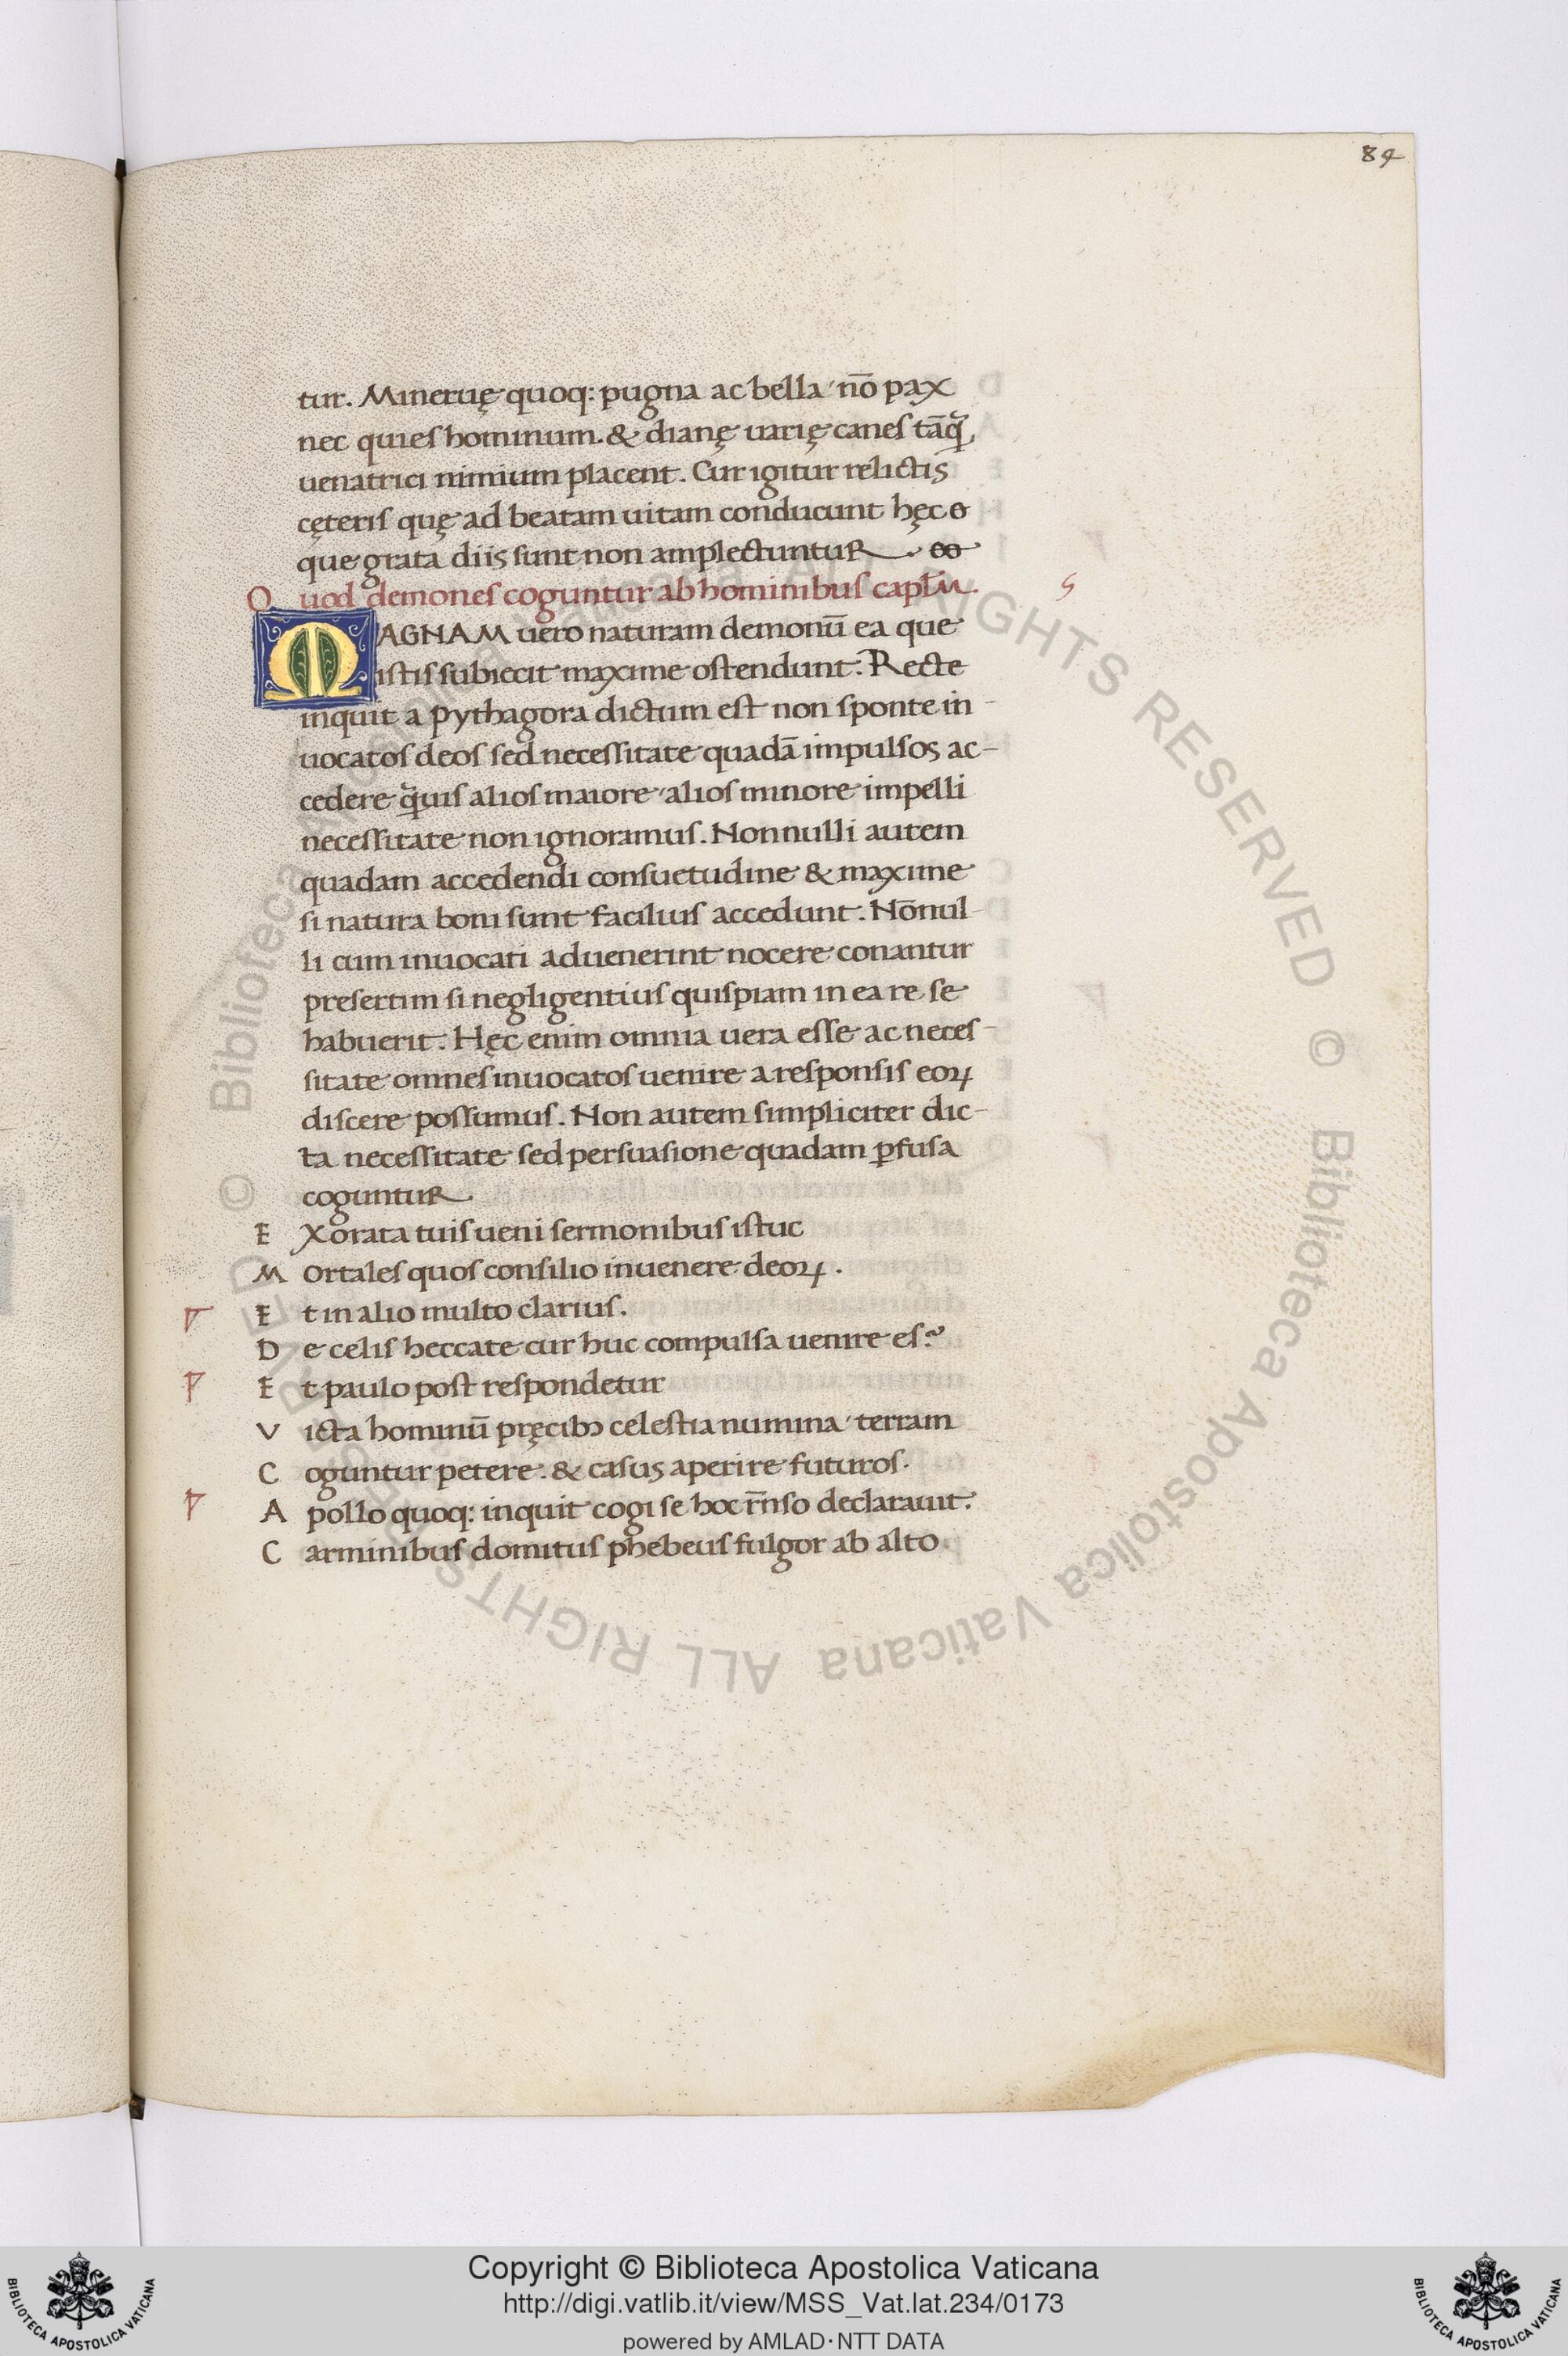 84
tur. Mineruę quoq: pugna ac bella nō pax
nec quies hominum. & dianę uarię canes tāq̃
uenatrici nimium placent. Cur igitur relictis
cęteris quę ad beatam uitam conducunt hęc
que grata diis sunt non amplectuntur.
Quod demones coguntur ab hominibus 5
MAGNAM uero naturam demonū ea que
istis subiecit maxime ostendunt. Recte
inquit a pythagora dictum est non sponte in-
uocatos deos sed necessitate quadā impulsos ac-
cedere q̃uis alios maiore alios minore impelli
necessitate non ignoramus. Nonnulli autem
quadam accedendi consuetudine & maxime
si natura boni sunt facilius accedunt. Nōnul-
li cum inuocati aduenerint nocere conantur
presertim si negligentius quispiam in ea re se
habuerit. Hęc enim omnia uera esse ac neces-
sitate omnes inuocatos uenire a responsis eoꝝ
discere possumus. Non autem simpliciter dic-
ta necessitate sed persuasione quadam ꝑfusa
coguntur.
Exorata tuis ueni sermonibus istuc
Mortales quos consilio inuenere deoꝝ.
Et in alio multo clarius.
De celis heccate cur huc compulsa uenire es?
Et paulo post respondetur
Victa hominū pręcibꝰ celestia numina terram
Coguntur petere. & casus aperire futuros.
Apollo quoq: inquit cogi se hoc r̄nso declarauit.
Carminibus domitus phebeus fulgor ab alto.
© Biblioteca Apostolica Vaticana ALL RIGHTS RESERVED
BIBLIOTECA APOSTOLICA VATICANA
Copyright © Biblioteca Apostolica Vaticana
http://digi.vatlib.it/view/MSS_Vat.lat.234/0173
powered by AMLAD·NTT DATA
BIBLIOTECA APOSTOLICA VATICANA